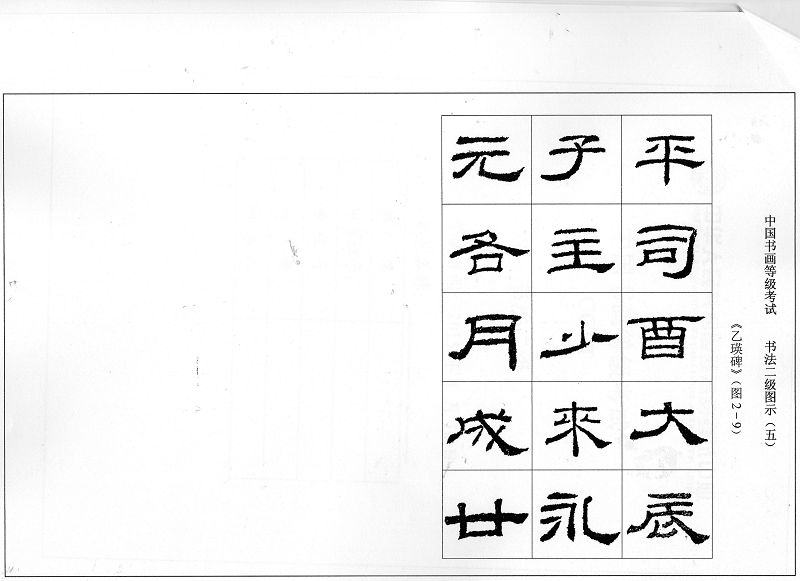 中国书画等级考试 书法二级图示（五）
《乙瑛碑》（图2-9）
平司酉大辰
子主少来永
元各月成廿